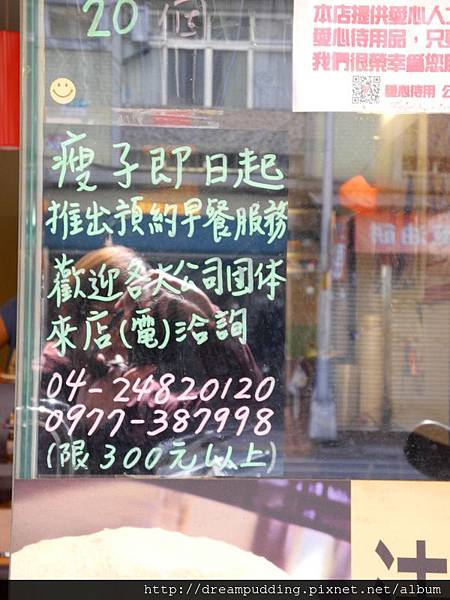 20個
本店提供愛心人
愛心待用品，只
我們很榮幸當您
愛心待用
瘦子即日起
推出預約早餐服務
歡迎各大公司团体
來店(電)洽詢
04-24820120
0977-387998
(限300元以上)
http://dreampudding.pixnet.net/album